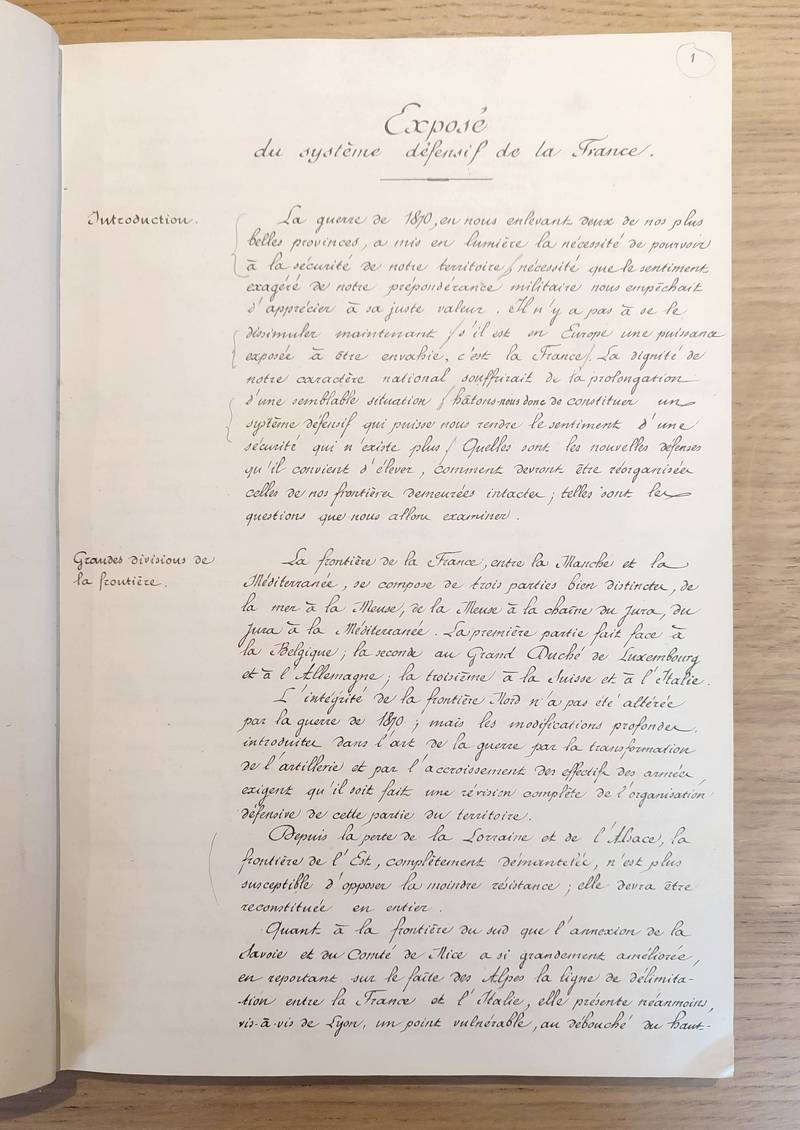 1
Exposé
du système défensif de la France.
Introduction.
La guerre de 1870, en nous enlevant deux de nos plus
belles provinces, a mis en lumière la nécessité de pourvoir
à la sécurité de notre territoire, nécessité que le sentiment
exagéré de notre prépondérance militaire nous empêchait
d'apprécier à sa juste valeur. Il n'y a pas à se le
dissimuler maintenant, s'il est en Europe une puissance
exposée à être envahie, c'est la France. La dignité de
notre caractère national souffrirait de la prolongation
d'une semblable situation, hâtons-nous donc de constituer un
système défensif qui puisse nous rendre le sentiment d'une
sécurité qui n'existe plus. Quelles sont les nouvelles défenses
qu'il convient d'élever, comment devront être réorganisées
celles de nos frontières demeurées intactes; telles sont les
questions que nous allons examiner.
Grandes divisions de
la frontière.
La frontière de la France, entre la Manche et la
Méditerranée, se compose de trois parties bien distinctes, de
la mer à la Meuse, de la Meuse à la chaîne du Jura, du
Jura à la Méditerranée. La première partie fait face à
la Belgique; la seconde au Grand Duché de Luxembourg
et à l'Allemagne; la troisième à la Suisse et à l'Italie.
L'intégrité de la frontière Nord n'a pas été altérée
par la guerre de 1870; mais les modifications profondes,
introduites dans l'art de la guerre par la transformation
de l'artillerie et par l'accroissement des effectifs des armées,
exigent qu'il soit fait une révision complète de l'organisation
défensive de cette partie du territoire.
Depuis la perte de la Lorraine et de l'Alsace, la
frontière de l'Est, complètement démantelée, n'est plus
susceptible d'opposer la moindre résistance; elle devra être
reconstituée en entier.
Quant à la frontière du sud que l'annexion de la
Savoie et du Comté de Nice a si grandement améliorée,
en reportant sur le faîte des Alpes la ligne de délimita-
tion entre la France et l'Italie, elle présente néanmoins,
vis-à-vis de Lyon, un point vulnérable, au débouché du haut-